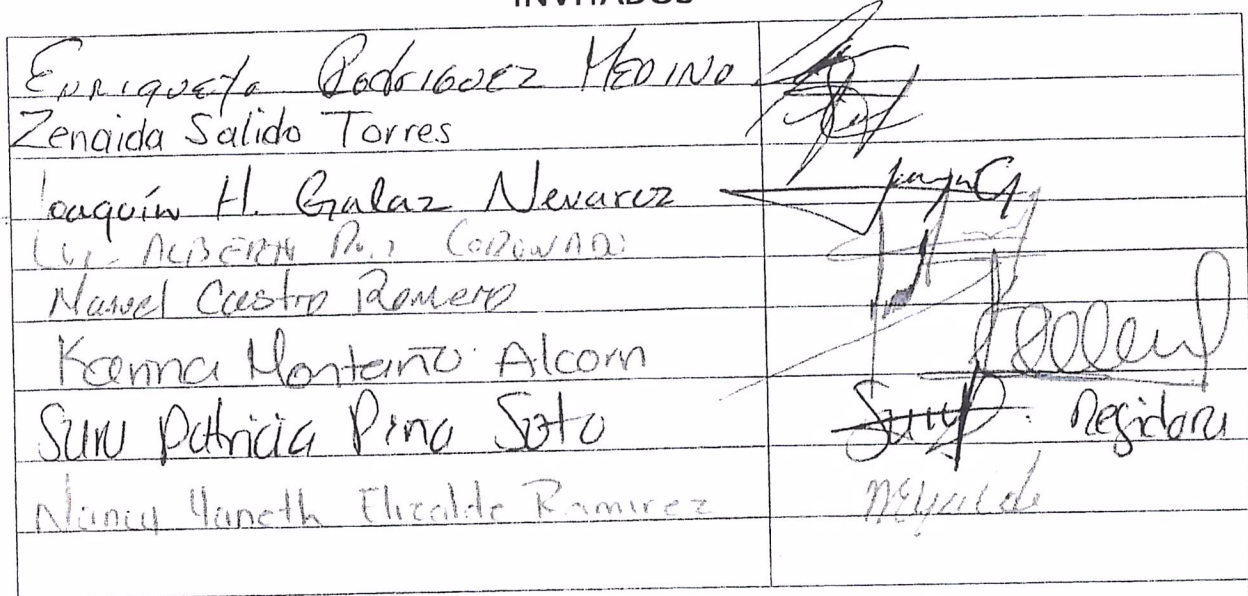 INVITADOS
Enriqueta Rodriguez Medina
Zenaida Salido Torres
Joaquín H. Galaz Nevarez
Luis Alberto Coronado
Manuel Castro Romero
Karina Montaño Alcorn
Patricia Pina Soto Regidora
Nancy Yaneth Elicalde Ramirez